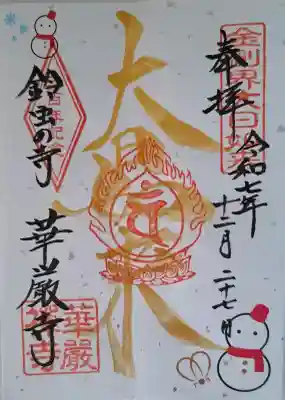 奉拝
令和七年
十二月二十七日
大日如来
鈴虫の寺
華厳寺
華厳